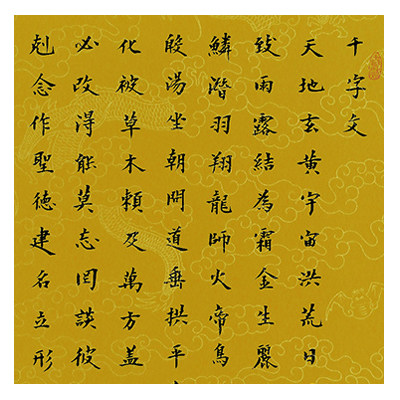 千字文
天地玄黃宇宙洪荒日
致雨露結為霜金生麗
鱗潛羽翔龍師火帝鳥
殷湯坐朝問道垂拱平
化被草木賴及萬方蓋
必改得能莫忘罔談彼
剋念作聖德建名立形